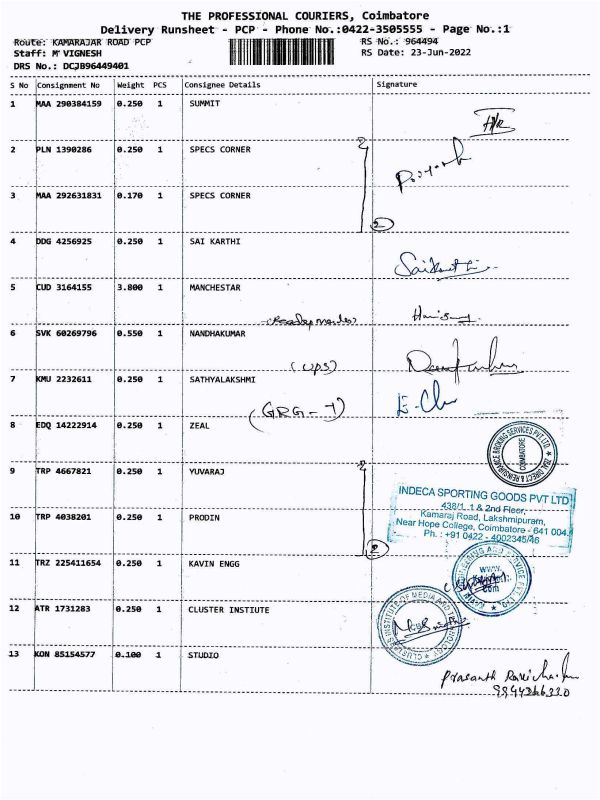 THE PROFESSIONAL COURIERS, Coimbatore
Delivery Runsheet - PCP - Phone No.:0422-3505555 - Page No.:1
Route: KAMARAJAR ROAD PCP RS No.: 964494
Staff: M VIGNESH RS Date: 23-Jun-2022
DRS No.: DCJB96449401
S No Consignment No Weight PCS Consignee Details Signature
1 MAA 290384159 0.250 1 SUMMIT
2 PLN 1390286 0.250 1 SPECS CORNER
3 MAA 292631831 0.170 1 SPECS CORNER
2
4 DDG 4256925 0.250 1 SAI KARTHI
5 CUD 3164155 3.800 1 MANCHESTAR
(Readymades)
6 SVK 60269796 0.550 1 NANDHAKUMAR
(UPS)
7 KMU 2232611 0.250 1 SATHYALAKSHMI
(GRG-T)
8 EDQ 14222914 0.250 1 ZEAL
COIMBATORE
9 TRP 4667821 0.250 1 YUVARAJ
INDECA SPORTING GOODS PVT LTD
438/1, 1 & 2nd Floor,
Kamaraj Road, Lakshmipuram,
Near Hope College, Coimbatore - 641 004.
Ph.: +91 0422 - 4002345/46
10 TRP 4038201 0.250 1 PRODIN
2
11 TRZ 225411654 0.250 1 KAVIN ENGG
12 ATR 1731283 0.250 1 CLUSTER INSTIUTE
CLUSTERS INSTITUTE OF MEDIA AND TECHNOLOGY
13 KON 85154577 0.100 1 STUDIO